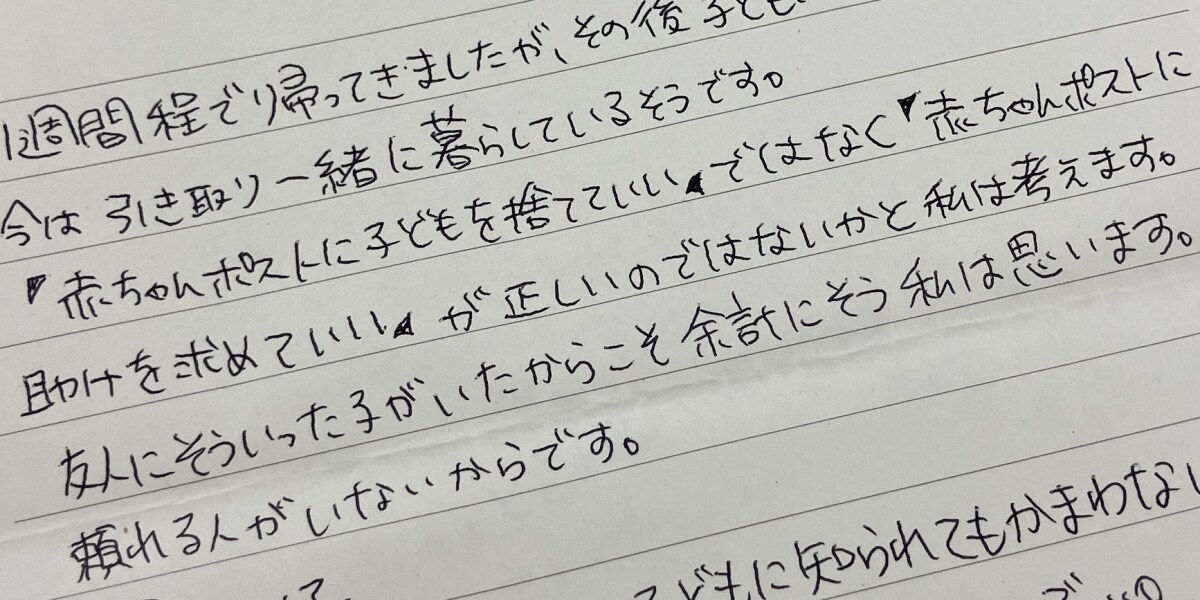 1週間程でり帰ってきましたが、その後子ども
今は引き取り一緒に暮らしているそうです。
「赤ちゃんポストに子どもを捨てていい」ではなく「赤ちゃんポストに
助けを求めていい」が正しいのではないかと私は考えます。
友人にそういった子がいたからこそ余計にそう私は思います。
頼れる人がいないからです。
子どもに知られてもかまわない